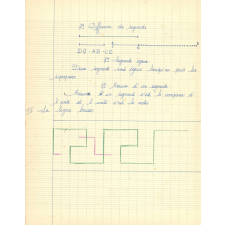 2) Différence de segments
DB = AB - CD
3) Segments égaux
Deux segments sont égaux lorsqu'on peut les
superposer
4) Mesure d'un segment
Mesurer un segment c'est le comparer à
l'unité et l'unité c'est le mètre
La ligne brisée